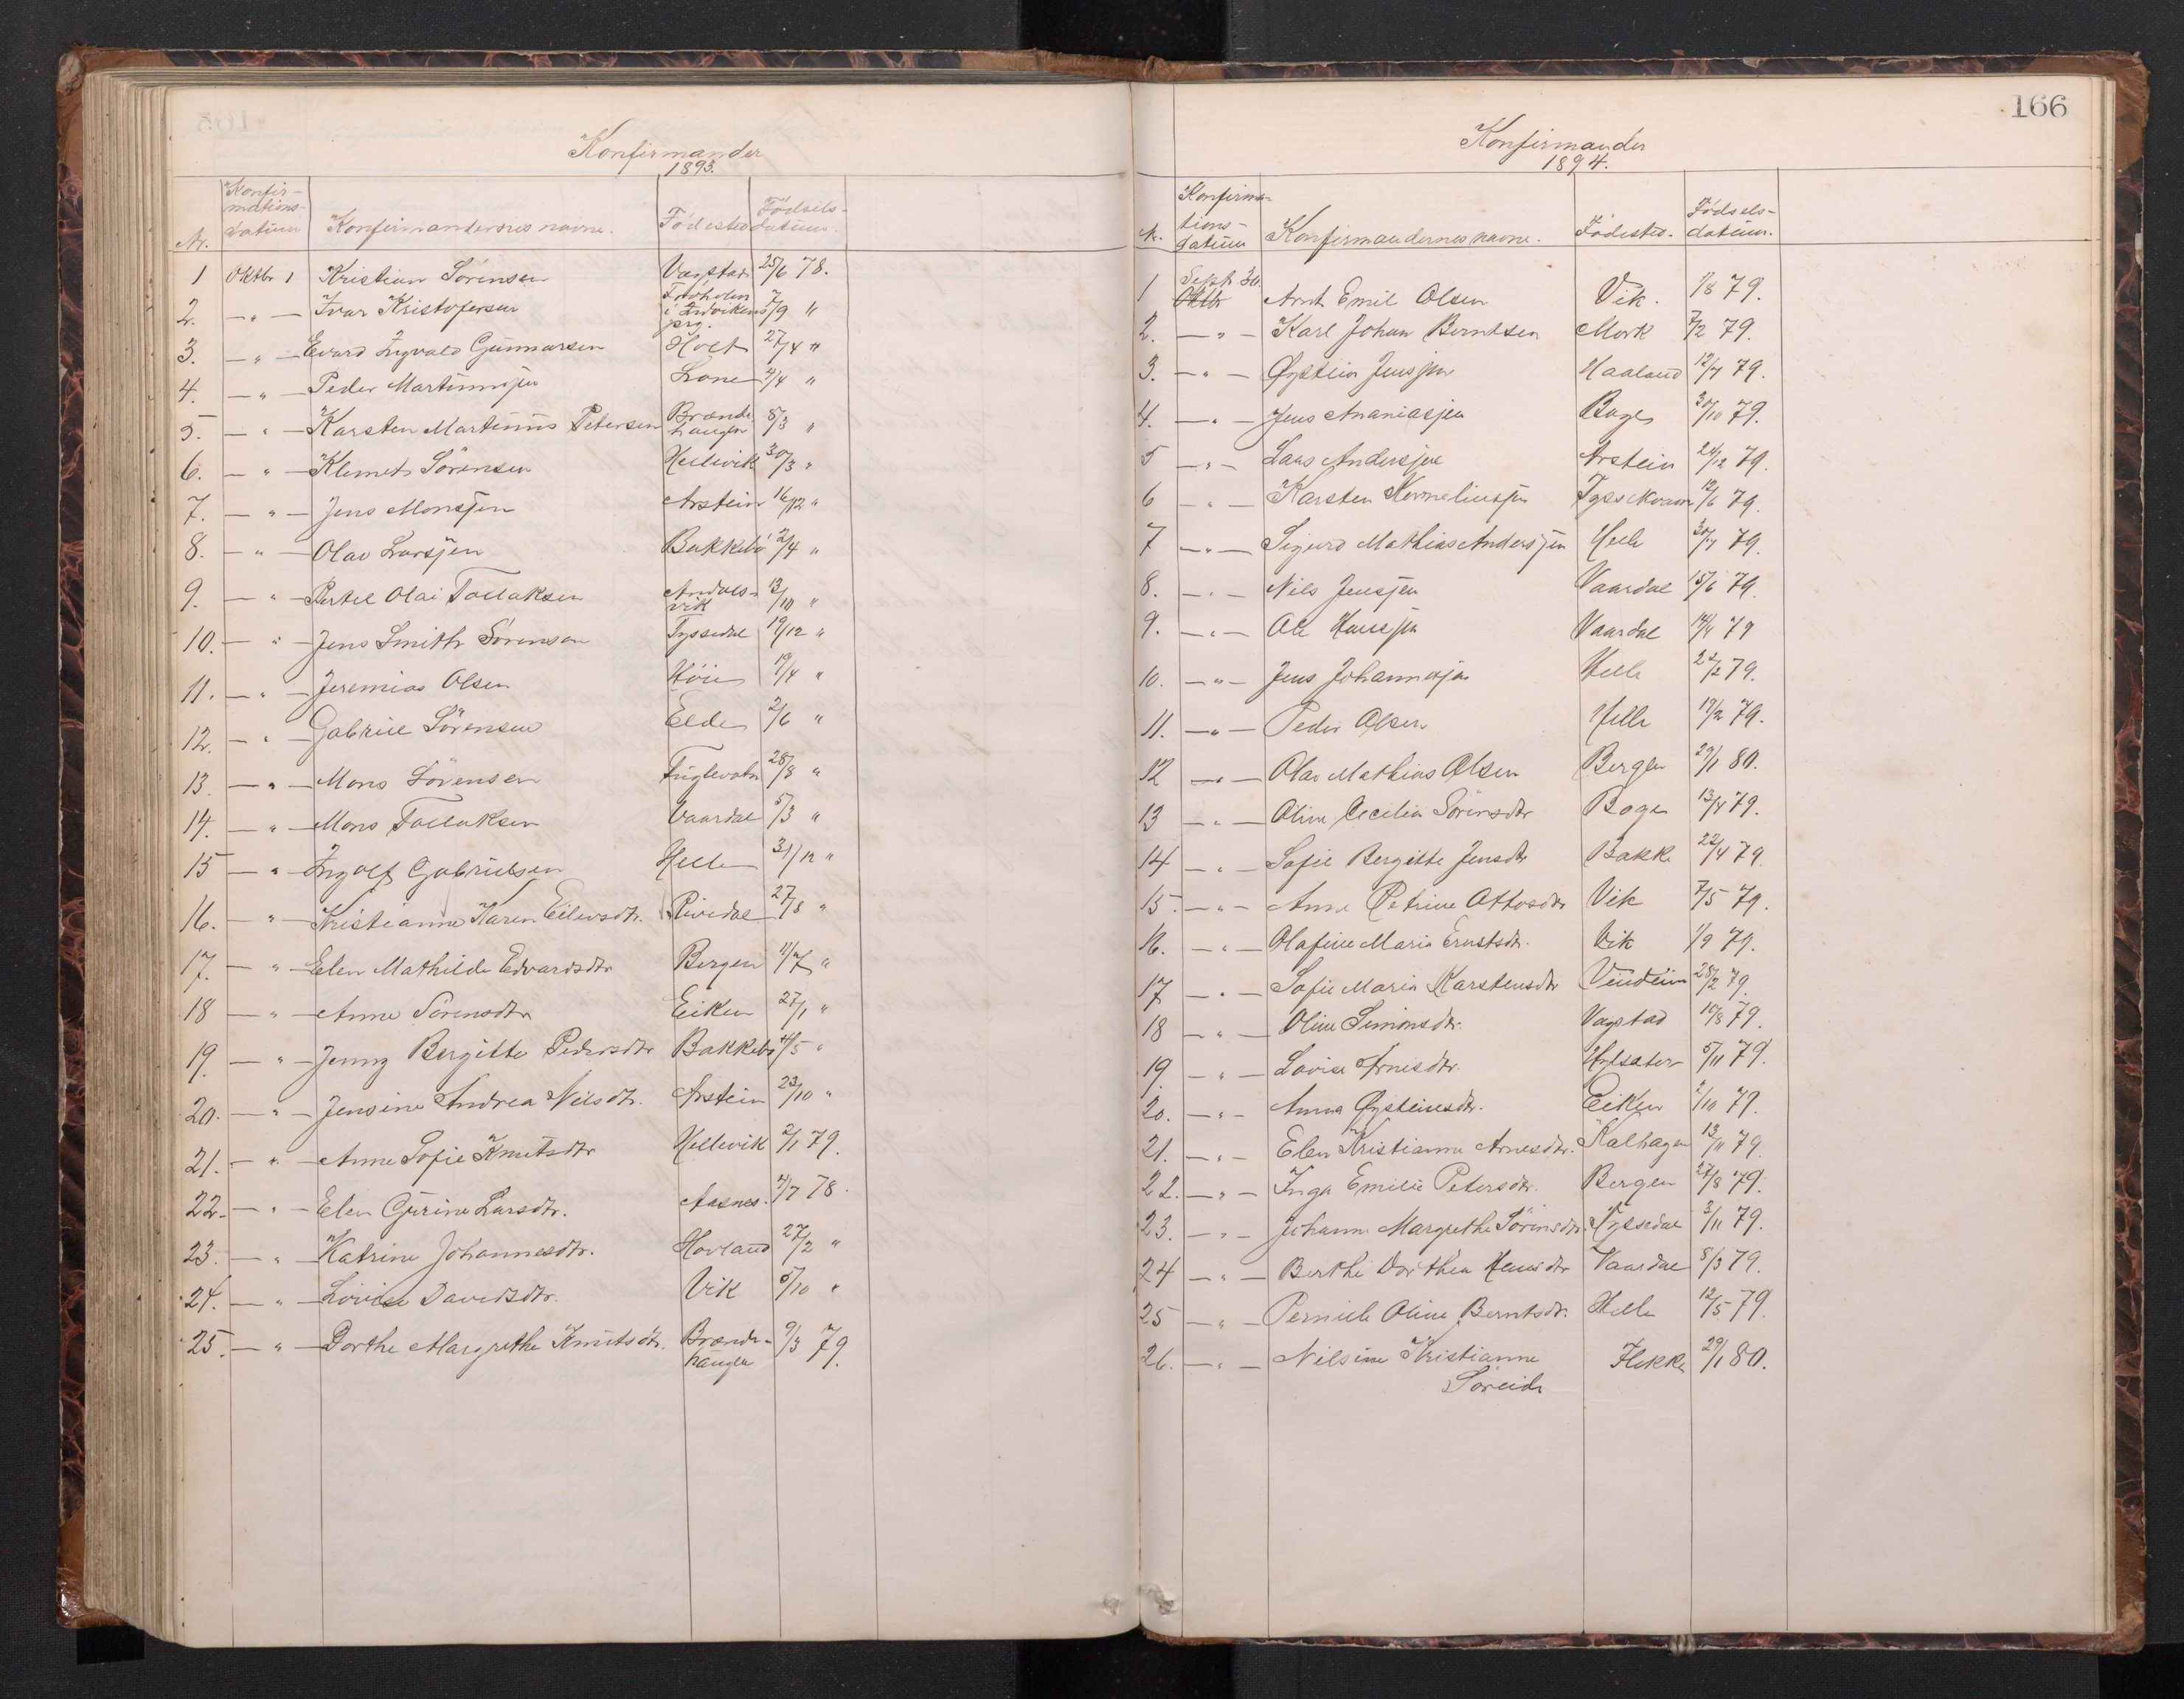 Konfirmander
1893.
Nr. Konfir-
mations-
datum Konfirmandernes navne. Fødested Fødsels-
datum.
1 Oktbr 1 Kristian Sörensen Vagstad 25/6 78.
2. — " — Ivar Kristofersen i Indvikens prg. 7/9 "
3. — " — Evard Ingvald Gunnarsen Holt 27/4 "
4. — " — Peder Martinusjen Lone 4/4 "
5. — " — Karsten Martinus Petersen Brænde-
haugen 8/3 "
6. — " — Klemet Sörensen Hellevik 30/3 "
7. — " — Jens Monsjen Arstein 16/12 "
8. — " — Olav Larsjen Bakkebö 2/4 "
9. — " — Bertel Olai Tollaksen Andals-
vik 13/10 "
10. — " — Jens Smith Sörensen Tyssedal 19/12 "
11. — " — Jeremias Olsen 19/4 "
12. — " — Gabriel Sörensen Elde 2/6 "
13. — " — Mons Sörensen Fuglevatn 28/8 "
14. — " — Mons Tollaksen Vaardal 5/3 "
15 — " — Ingolf Gabrielsen Helle 31/12 "
16. — " — Kristianne Karen Eilersdtr. Rivedal 27/8 "
17. — " — Elen Mathilde Edvardsdtr Bergen 11/7 "
18 — " — Anne Sörensdtr Eiken 27/1 "
19. — " — Jenny Bergitte Pedersdtr Bakkebö 4/5 "
20. — " — Jensine Andrea Nilsdtr. Arstein 23/10 "
21. — " — Anne Sofie Knutsdtr Hellevik 2/1 79.
22. — " — Elen Gurine Larsdtr. Aasnes. 4/7 78.
23. — " — Katrine Johannesdtr. Hovland 27/2 "
24. — " — Lovise Davidsdtr. Vik 5/10 "
25. — " — Dorthe Margrethe Knutsdtr. Brænde-
haugen 9/3 79.
166
Konfirmander
1894.
N. Konfirma-
tions-
datum Konfirmandernes navne. Fødested. Fødsels-
datum.
1 Sept. 30. Oktbr Arnt Emil Olsen Vik. 1/8 79.
2. — " — Karl Johan Berntsen Mork 7/2 79.
3. — " — Øystein Jensjen Haaland 12/7 79.
4. — " — Jens Ananiasjen Bøge 30/10 79.
5 — " — Lars Andersjen Arstein 24/12 79.
6 — " — Karsten Korneliusjen Tyssekvam 12/6 79.
7 — " — Sigurd Mathias Andersjen Helle 30/7 79.
8. — " — Nils Jensjen Vaardal 15/6 79.
9. — " — Ole Hansjen Vaardal 14/4 79
10. — " — Jens Johannesjen Helle 22/2 79.
11. — " — Peder Olsen Helle 17/2 79.
12 — " — Olav Mathias Olsen Bergen 29/1 80.
13 — " — Oline Cecilia Sörensdtr Bøge 13/4 79.
14 — " — Sofie Bergitte Jensdtr Bakke 22/4 79.
15. — " — Anne Petrine Ottosdtr Vik 7/5 79.
16. — " — Olafine Marie Ernstsdtr. Vik 1/9 79.
17 — " — Sofie Marie Karstensdtr 28/2 79.
18 — " — Oline Simonsdtr. Vagstad 10/8 79.
19. — " — Lovise Arnesdtr. 5/11 79.
20. — " — Anna Øysteinsdtr. Eiken 2/10 79.
21. — " — Elen Kristianne Arnesdtr. Kalhagen 13/11 79.
22. — " — Inga Emilie Petersdtr. Bergen 27/8 79.
23. — " — Johanne Margrethe Sörensdtr. Tyssedal 3/11 79.
24 — " — Berthe Dorthea Hansdtr Vaardal 8/3 79.
25 — " — Pernille Oline Berntsdtr. Helle 12/5 79.
26. — " — Nilsine Kristianne
Søreide Flekke 29/1 80.